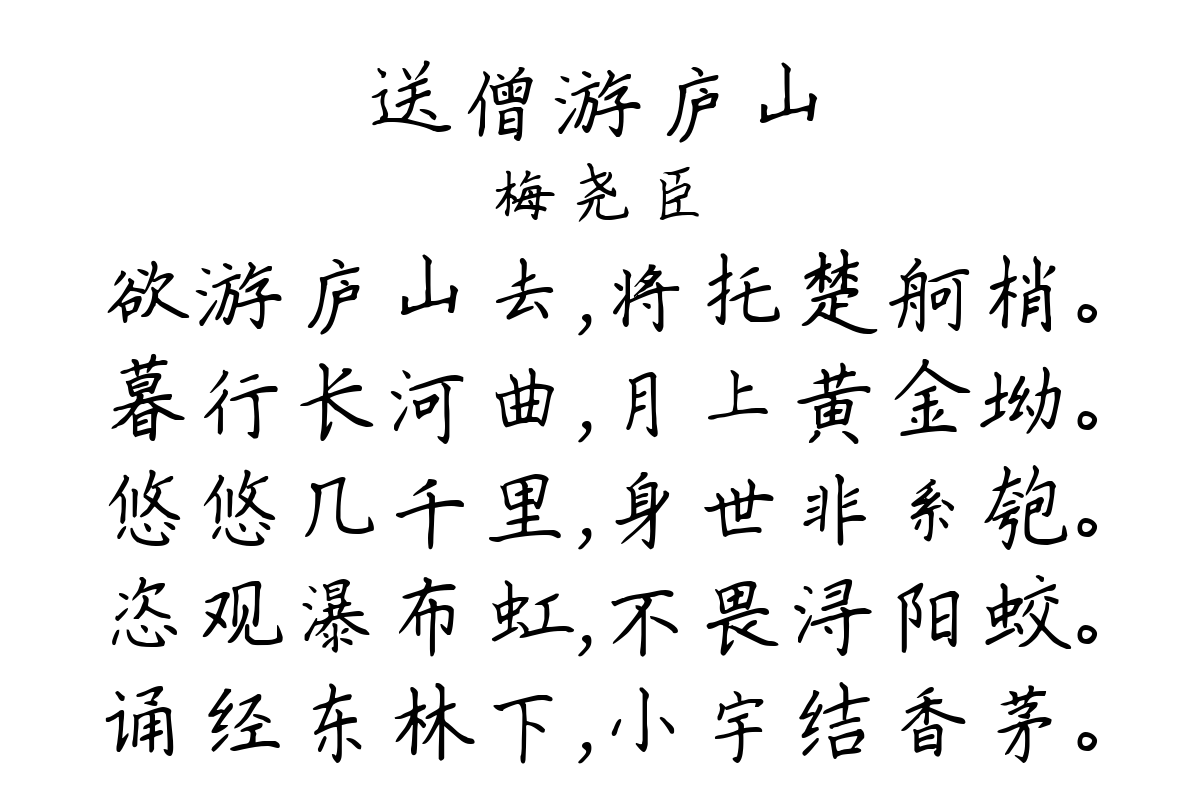 送僧游庐山
梅尧臣
欲游庐山去,将托楚舸梢。
暮行长河曲,月上黄金坳。
悠悠几千里,身世非系匏。
恣观瀑布虹,不畏浔阳蛟。
诵经东林下,小宇结香茅。